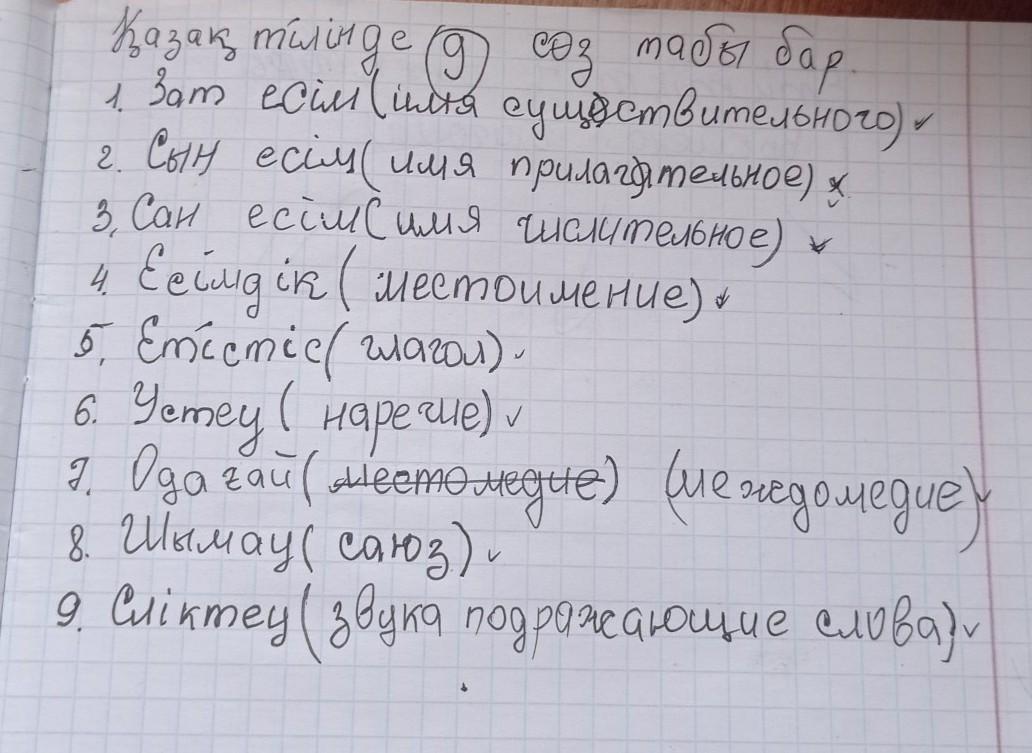 Қазақ тілінде 9 сөз табы бар.
1. Зат есім (имя существительного) ✓
2. Сын есім (имя прилагательное) ✓
3. Сан есім (имя числительное) ✓
4. Есімдік (местоимение) ✓
5. Етістіс (глагол) ✓
6. Устеу (наречие) ✓
7. Одағай (местомедие) (межедомедие) ✓
8. Шымау (саюз) ✓
9. Сліктеу (звука подражающие слова) ✓